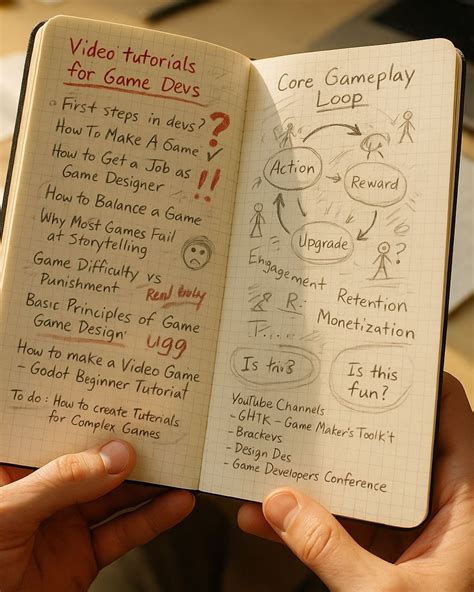 Video tutorials
for Game Devs
First steps in devs?
?
How To Make A Game ✓
How to Get a Job as
Game Designer
!!
How to Balance a Game
Why Most Games Fail
at Storytelling
Game Difficulty vs
Punishment
Basic Principles of Game
Game Design
ugg
How to make a Video Game
- Godot Beginner Tutorial
To do : How to create Tutorials
for Complex Games
Core Gameplay
Loop
Action
Reward
Upgrade
?
Engagement
R:
Retention
Monetization
Is
Is this
fun?
YouTube Channels
- GHTK - Game Maker's Toolkit
- Brackevs
- Design Des
- Game Developers Conference